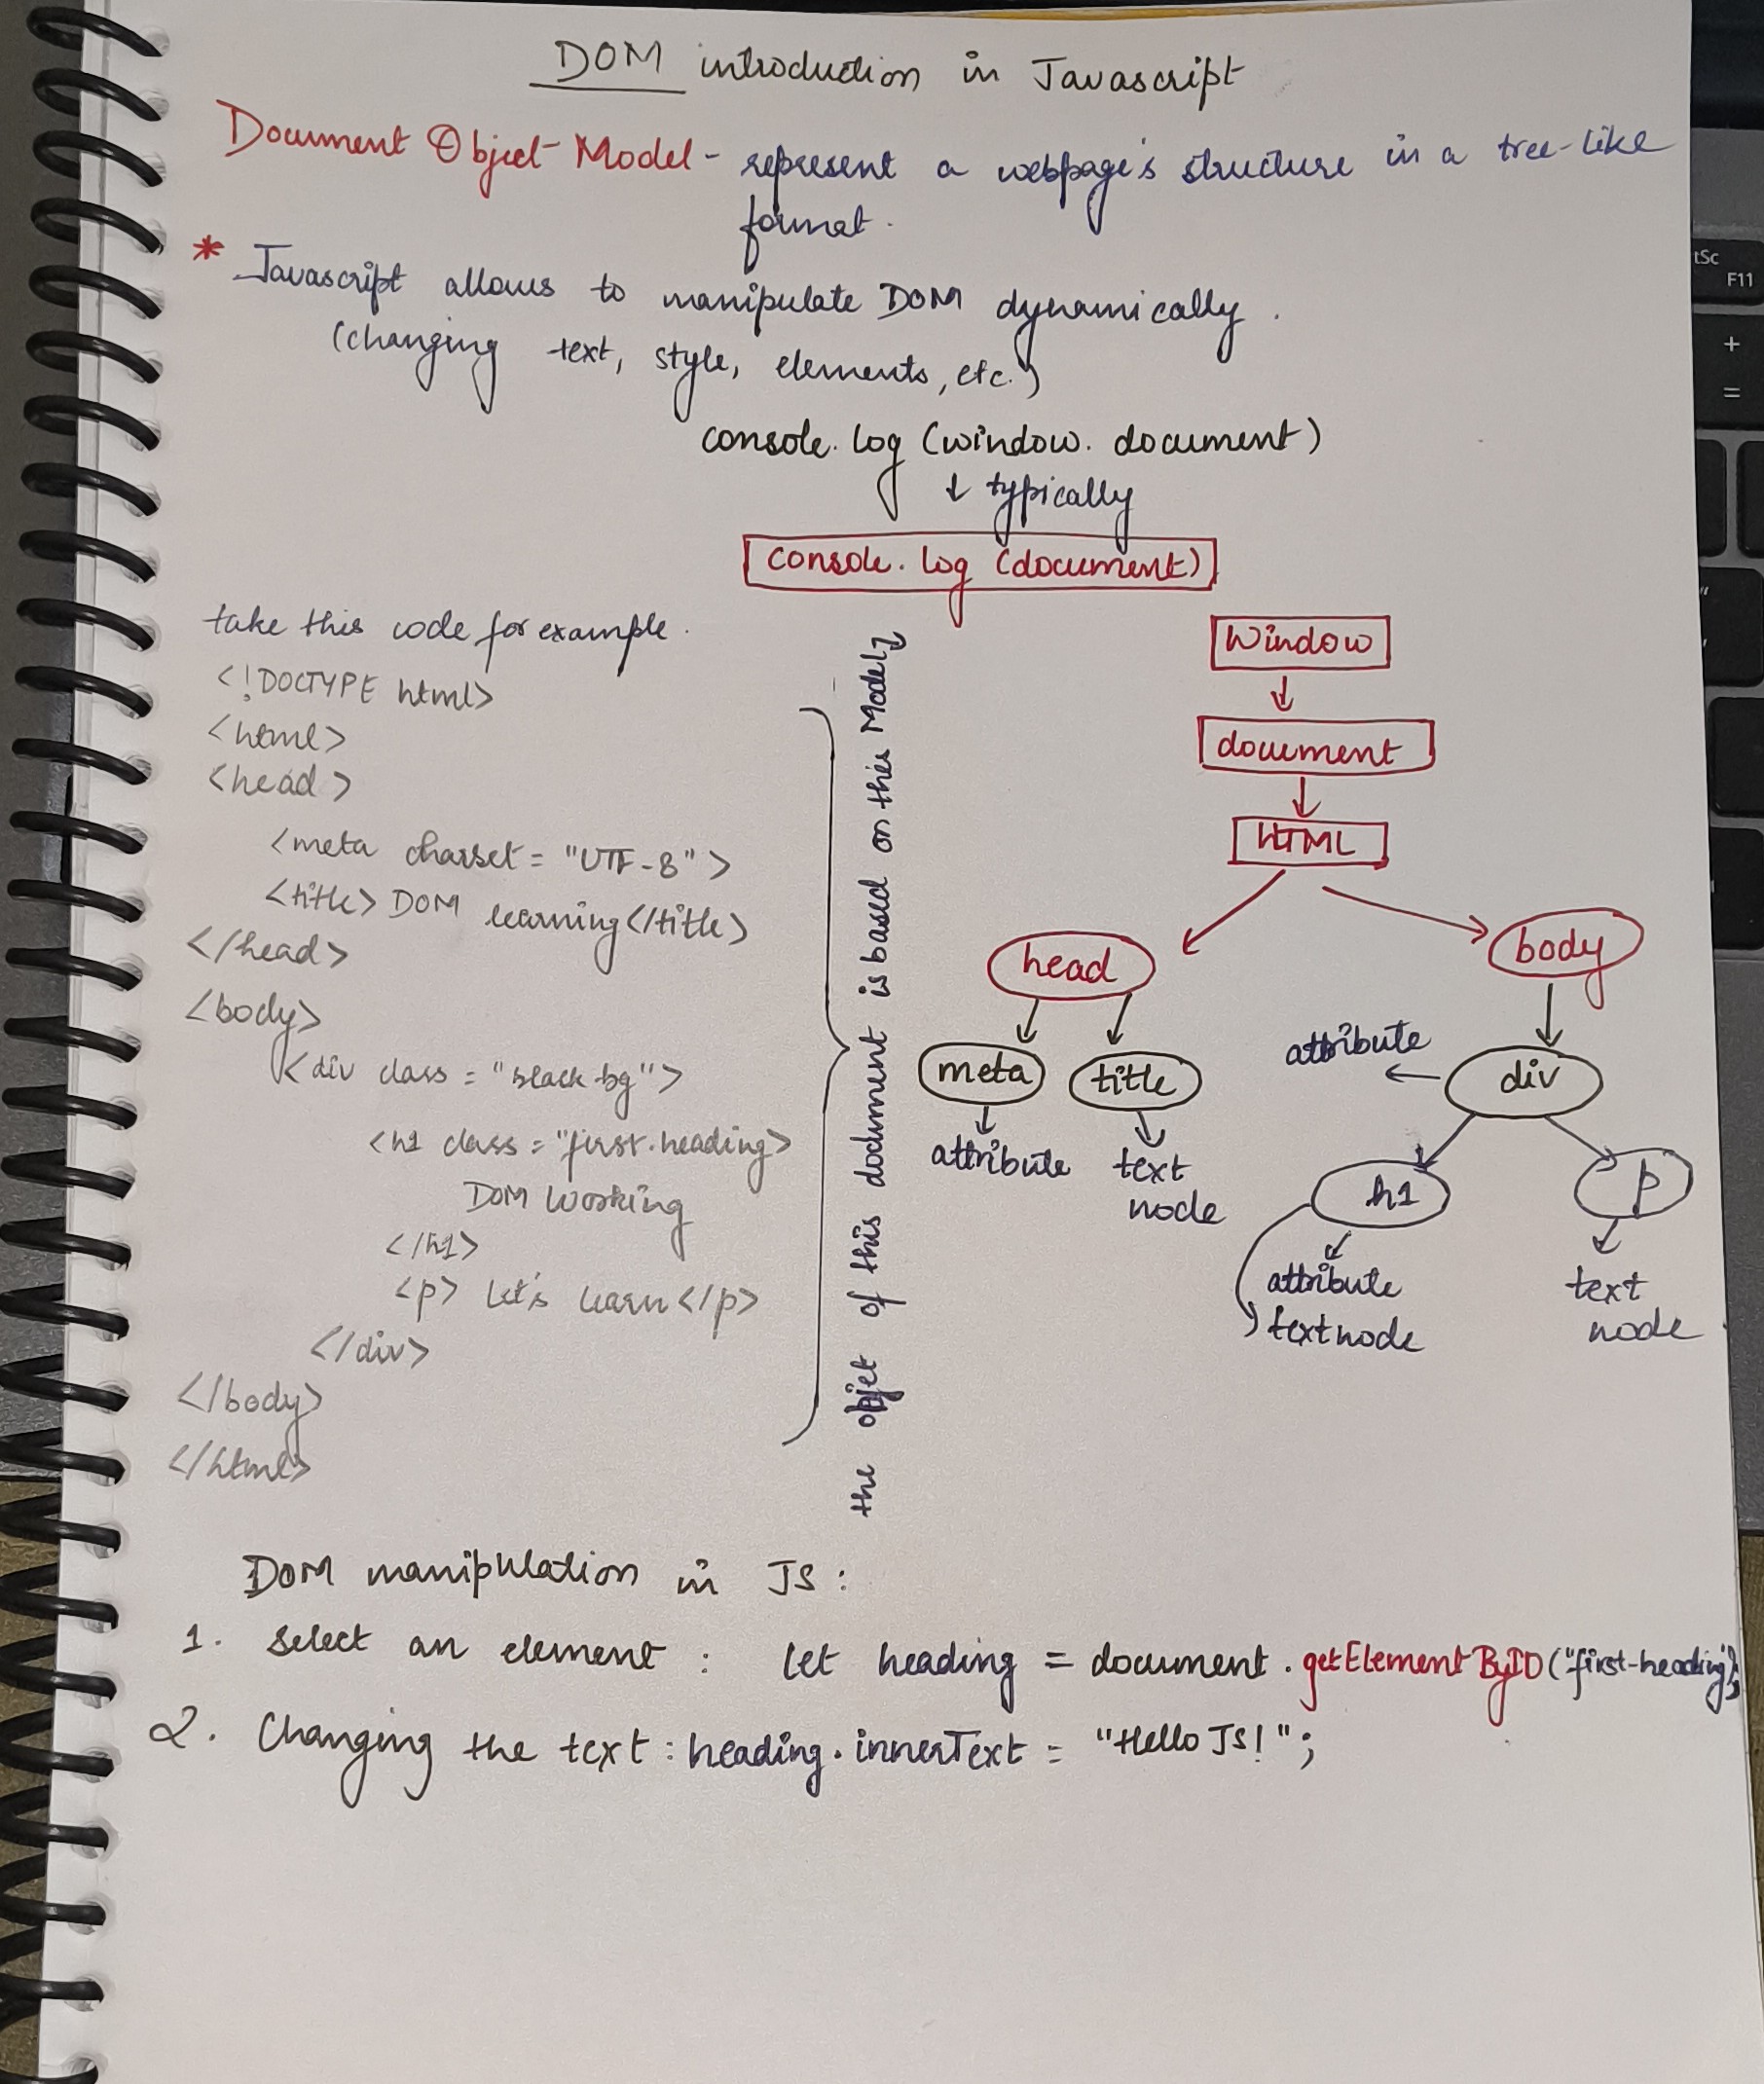 DOM introduction in Javascript
Document Object Model - represent a webpage's structure in a tree-like
format.
* Javascript allows to manipulate DOM dynamically.
(changing text, style, elements, etc.)
console.log (window.document)
↓ typically
console.log (document)
take this code for example.
<!DOCTYPE html>
<html>
<head>
<meta charset = "UTF-8">
<title> DOM learning</title>
</head>
<body>
<div class = "black-bg">
<h1 class = "first-heading>
DOM Working
</h1>
<p> Let's learn </p>
</div>
</body>
</html>
the objet of this document is based on this Model
Window
document
HTML
head
body
attribute
div
meta
title
attribute
text
node
h1
p
attribute
textnode
text
node
DOM manipulation in JS :
1. Select an element : let heading = document.getElementByID("first-heading");
2. Changing the text : heading.innerText = "Hello JS!";
tSc
F11
+
=